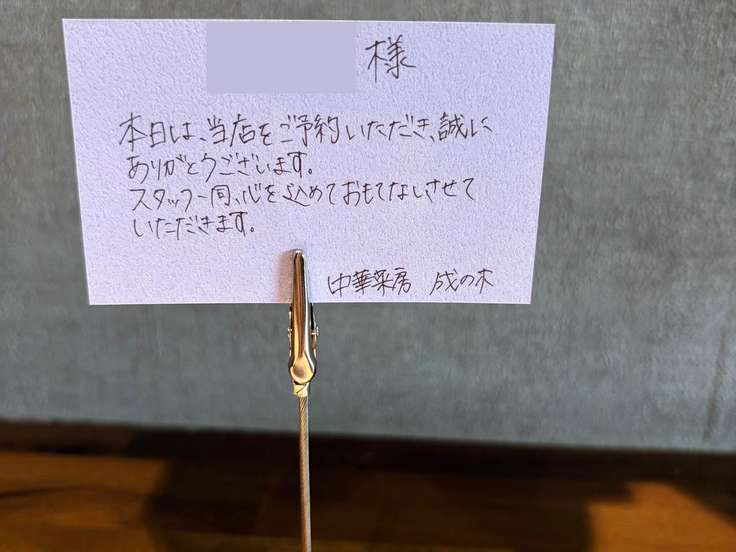 様
本日は、当店をご予約いただき、誠に
ありがとうございます。
スタッフ一同、心を込めておもてなしさせて
いただきます。
中華菜房 成の木